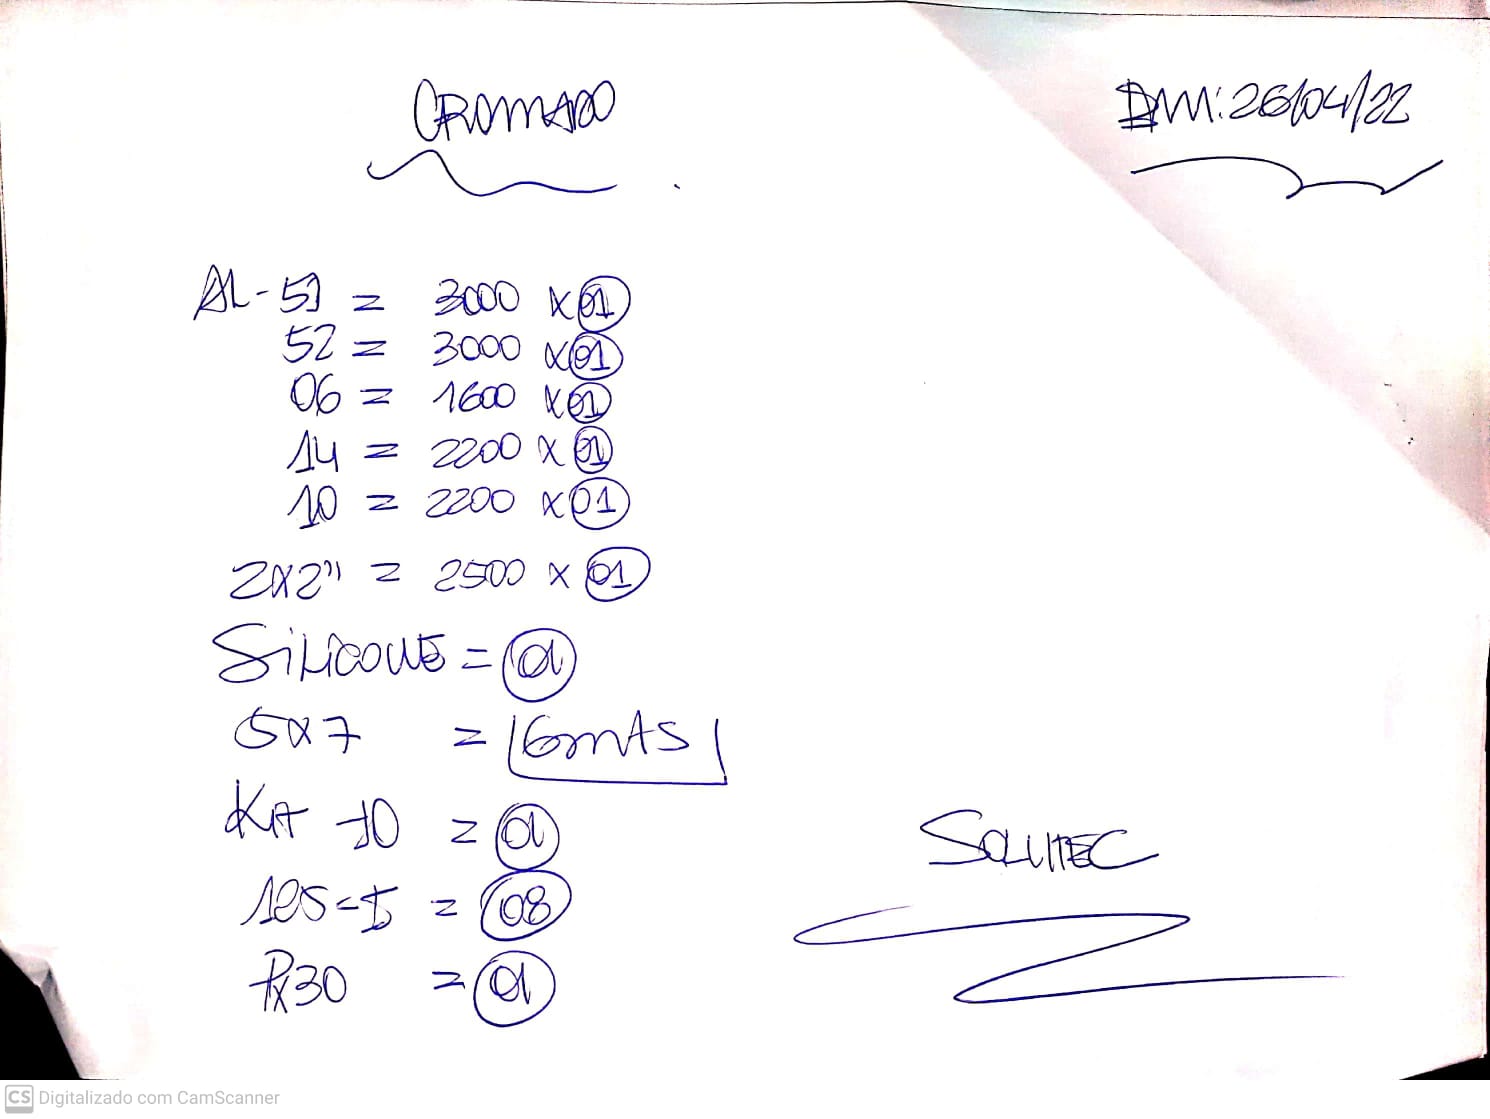 CROMADO
26/04/22
AL-51 = 3000 x 01
52 = 3000 x 01
06 = 1600 x 01
14 = 2200 x 01
10 = 2200 x 01
2x2" = 2500 x 01
SILICONE = 01
5x7 = 6mts
Kit 10 = 01
125 = 08
Px30 = 01
SOLUTEC
CS Digitalizado com CamScanner